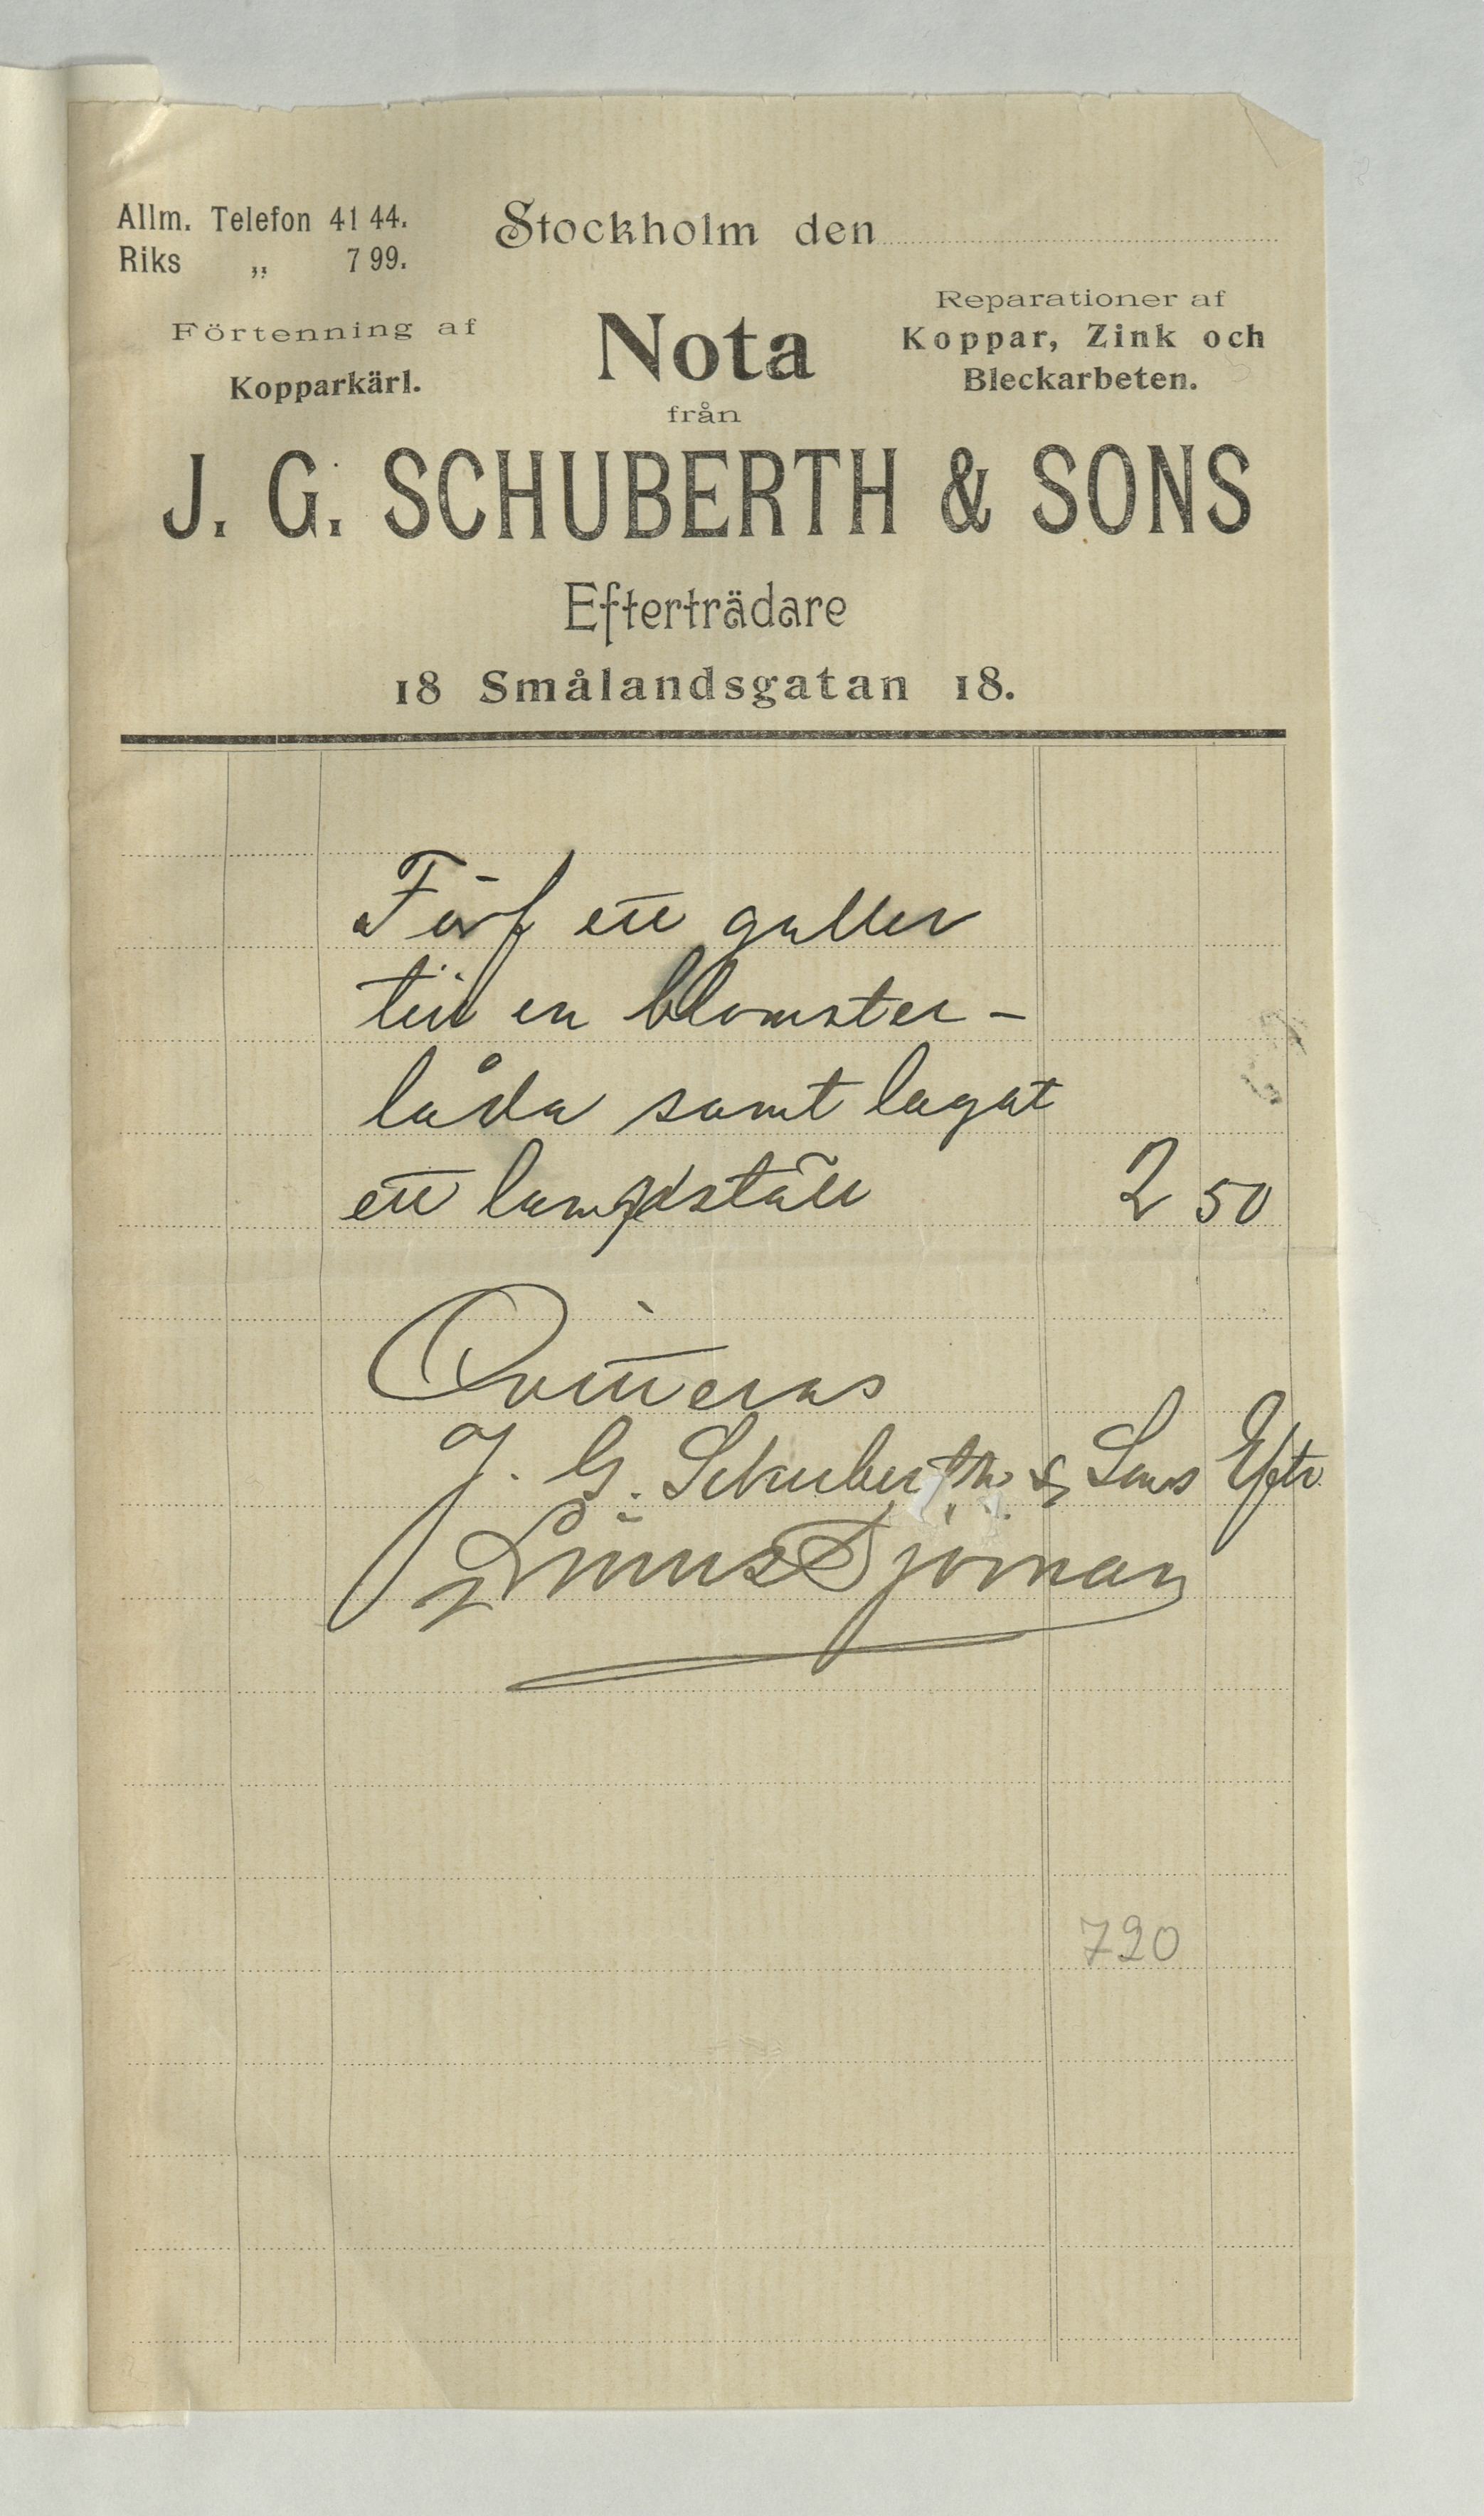 Allm. Telefon 41 44.
Riks „ 7 99.
Stockholm den
Förtenning af
Kopparkärl.
Nota
från
Reparationer af
Koppar, Zink och
Bleckarbeten.
J. G. SCHUBERTH & SONS
Efterträdare
18 Smålandsgatan 18.
Förf ett galler
till en blomster-
låda samt lagat
ett lampställ 2 50
Qvitteras
J. G. Schuberth & Sons Eftr.
Linus Sjöman
720